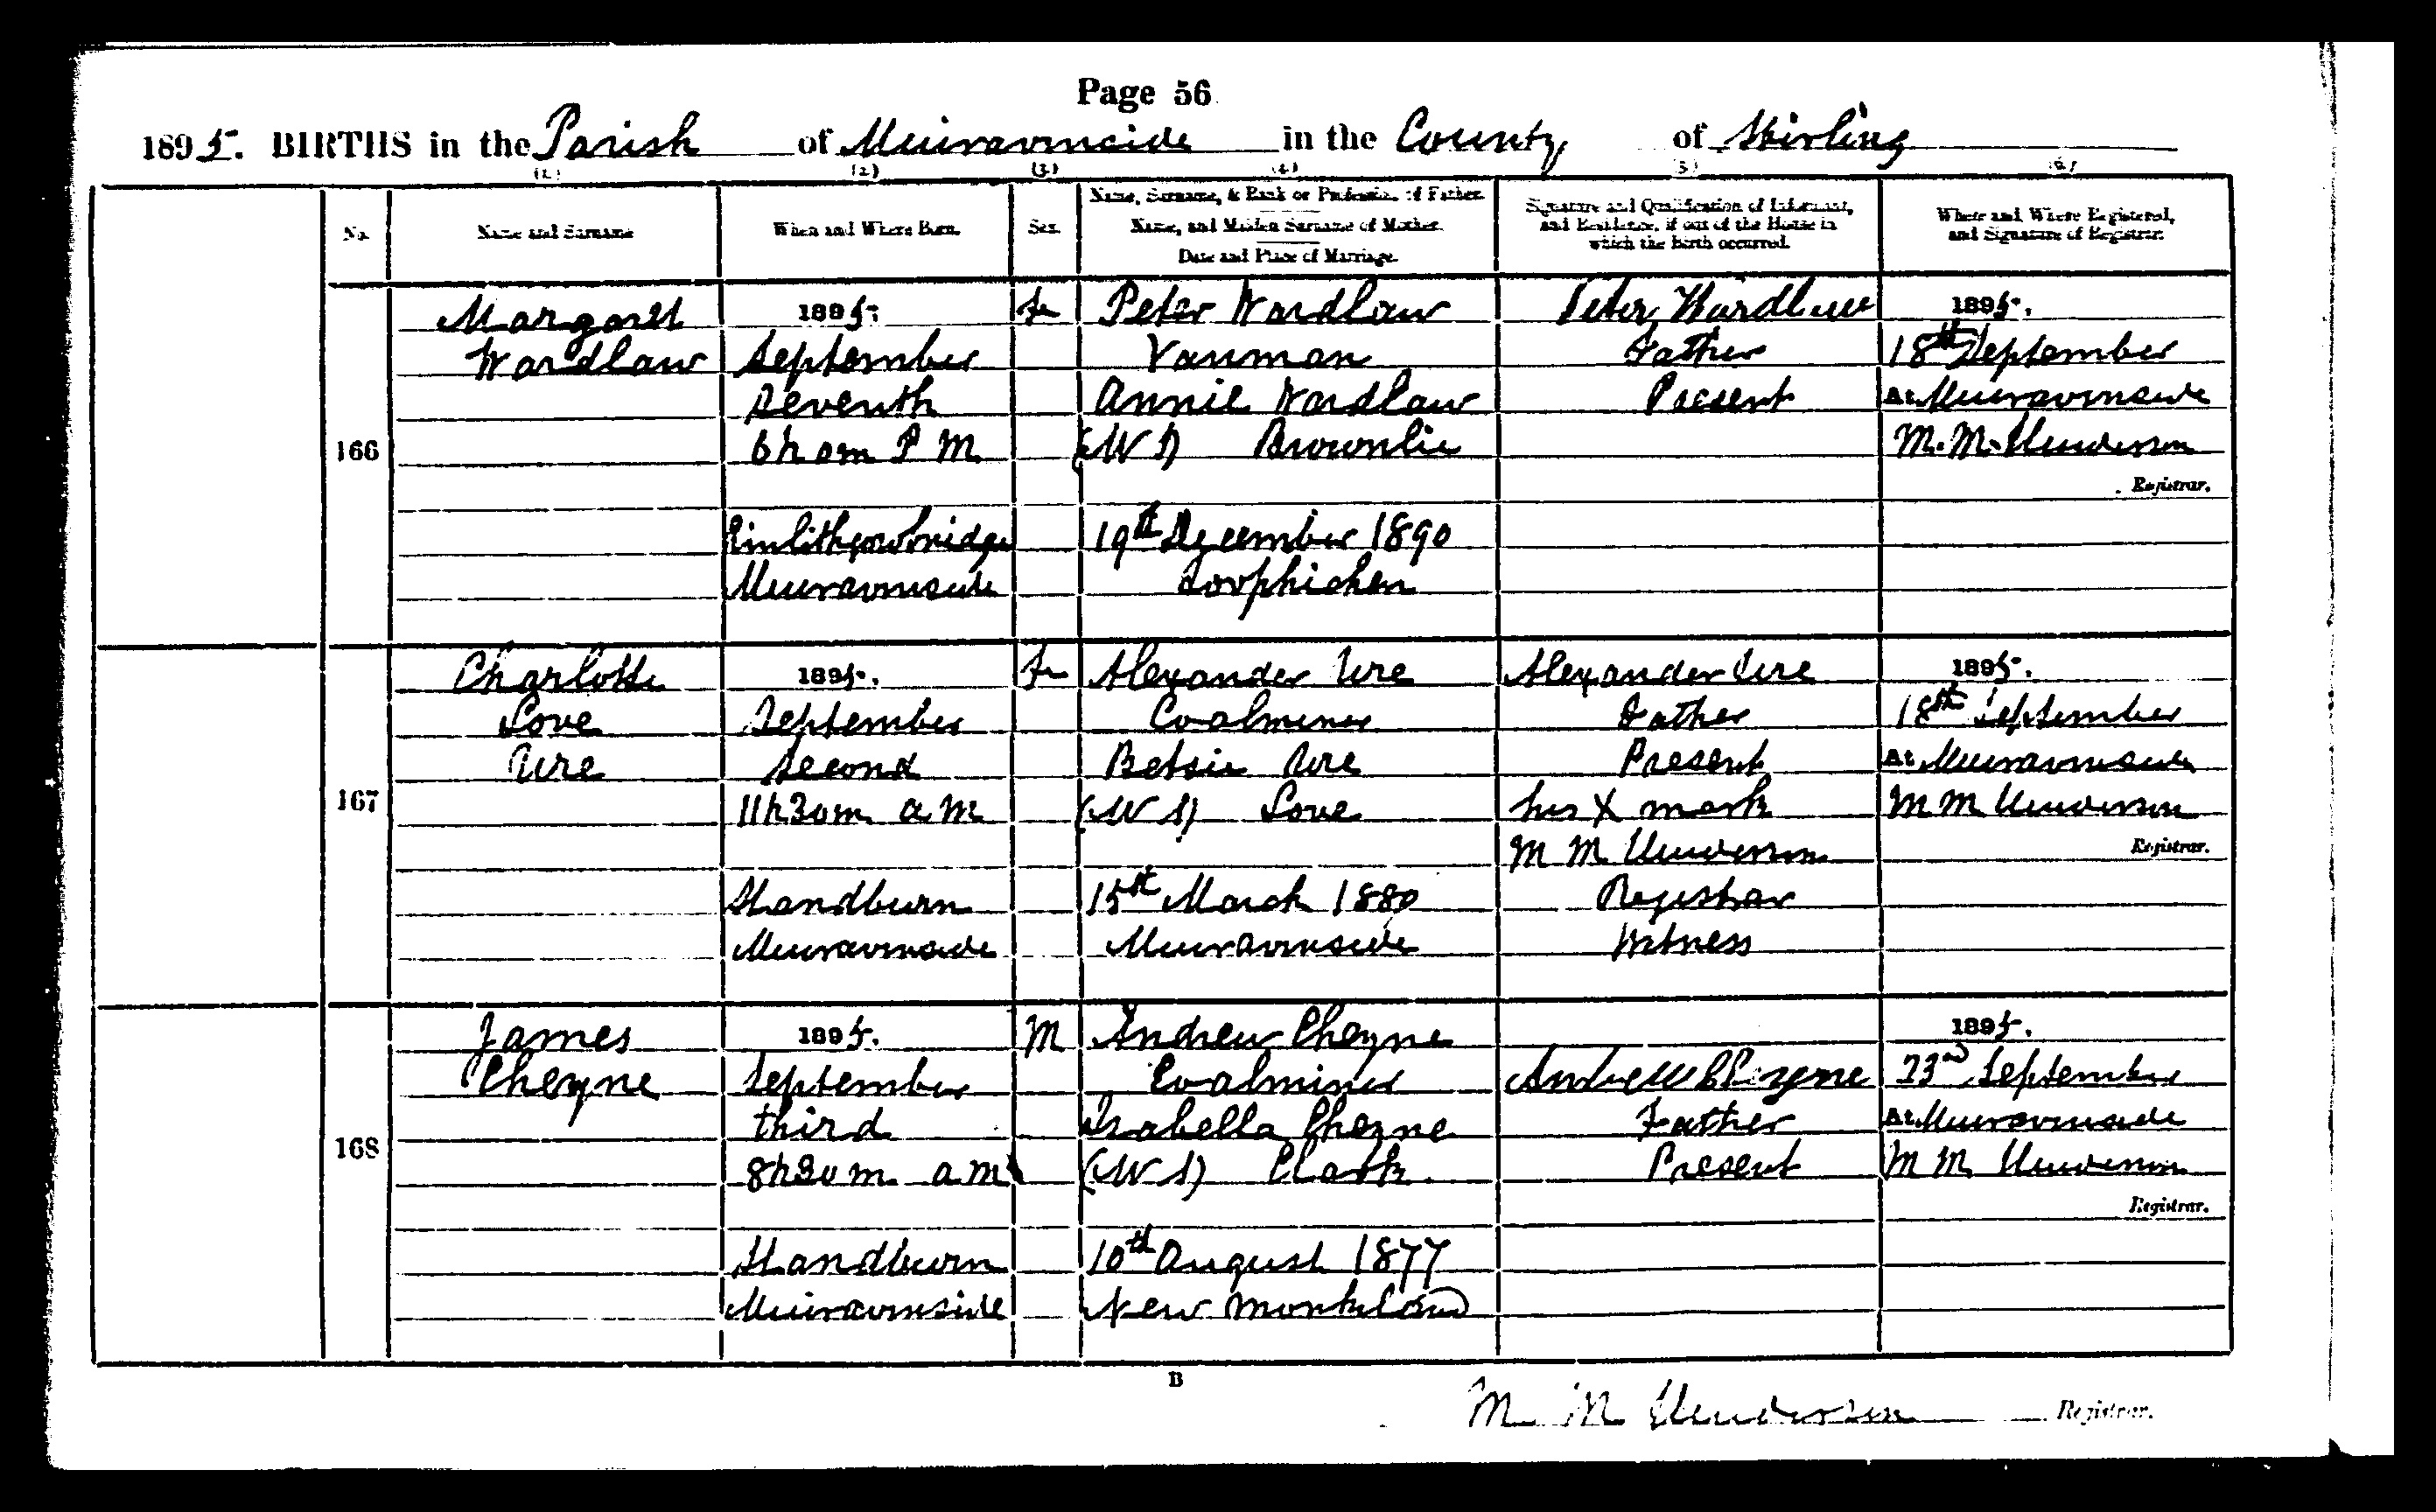 Page 56
1895. BIRTHS in the Parish of Muiravonside in the County of Stirling
(1.) (2.) (3.) (4.) (5.) (6.)
No.
Name and Surname
When and Where Born.
Sex.
Name, Surname, & Rank or Profession of Father.
Name, and Maiden Surname of Mother.
Date and Place of Marriage.
Signature and Qualification of Informant,
and Residence, if out of the House in
which the birth occurred.
When and Where Registered,
and Signature of Registrar.
166
Margaret
Wardlaw
1895.
September
Seventh
6h 0m P M
Linlithgowbridge
Muiravonside
F
Peter Wardlaw
Vanman
Annie Wardlaw
(M S) Brownlie
19th December 1890
Torphichen
Peter Wardlaw
Father
Present
1895.
18th September
At Muiravonside
M. M. Henderson
Registrar.
167
Charlotte
Love
Ure
1895.
September
Second
11h 30m a M
Standburn
Muiravonside
F
Alexander Ure
Coalminer
Betsie Ure
(M S) Love
15th March 1880
Muiravonside
Alexander Ure
Father
Present
his X mark
M M Henderson
Registrar
Witness
1895.
18th September
At Muiravonside
M M Henderson
Registrar.
168
James
Cheyne
1895.
September
third
8h 30m a M
Standburn
Muiravonside
M
Andrew Cheyne
Coalminer
Isabella Cheyne
(M S) Clark
10th August 1877
New Monkland
Andrew Cheyne
Father
Present
1895.
23rd September
At Muiravonside
M M Henderson
Registrar.
B
M M Henderson Registrar.